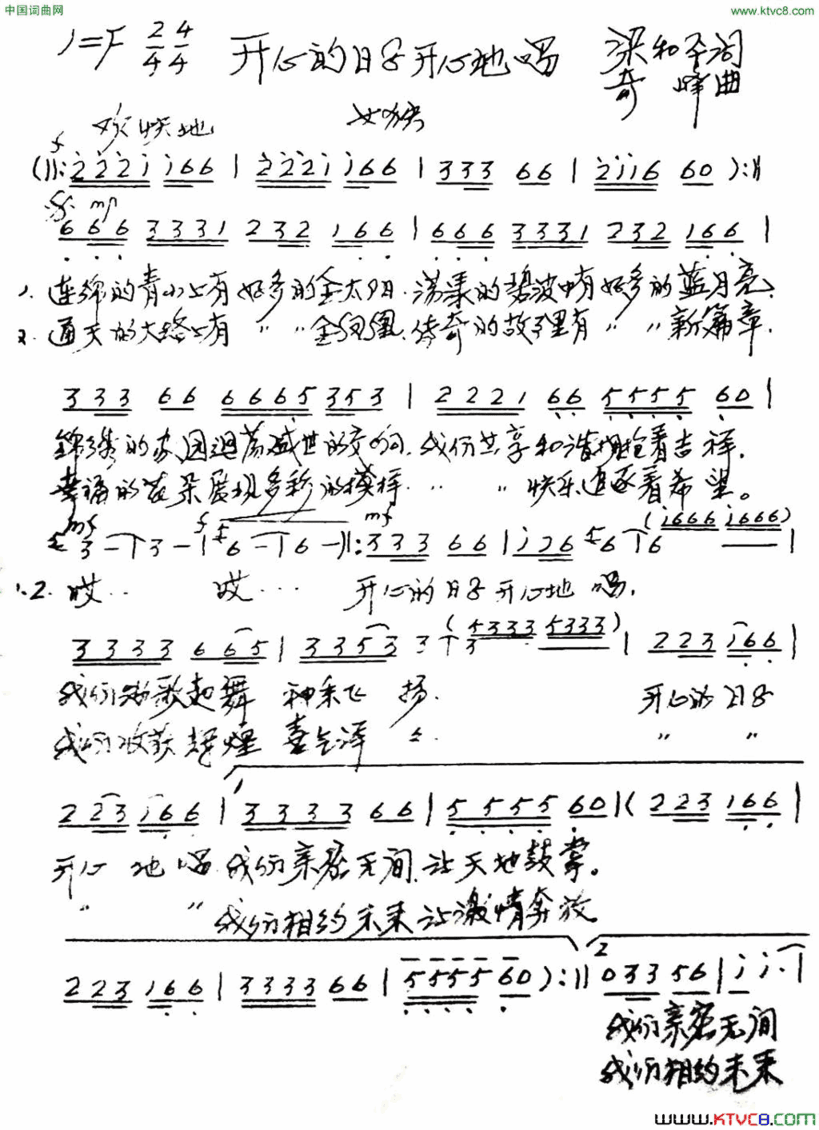 中国词曲网 www.ktvc8.com
1=F 2/4 4/4 开心的日子开心地唱 梁和平词
奇峰曲
欢快地
f
(‖: 2̇2̇2̇1̇ 1̇66 | 2̇2̇2̇1̇ 1̇66 | 333 66 | 2̇1̇1̇6 60 ):‖
mf
666 3331 232 166 | 666 3331 232 166 |
1. 连绵的青山上有好多的金太阳,荡漾的碧波中有好多的蓝月亮,
2. 通天的大路上有 〃 〃 金凤凰,传奇的故事里有 〃 〃 新篇章,
333 66 6665 353 | 2221 66 5555 60 |
锦绣的家园回荡盛世的交响,我们共享和谐拥抱着吉祥,
幸福的花朵展现多彩的模样 〃 〃 快乐追逐着希望。
mf f mf (1̇666 1̇666)
3 - | 3 - | 6 - | 6 - ‖: 333 66 | 1̇26 6 | 6 |
1.2. 哎‥ 哎… 开心的日子开心地唱,
(5333 5333)
3333 665 | 3353 3 | 3 | 223 1̇66 |
我们欢歌起舞 神采飞扬. 开心的日子
我们收获辉煌 喜气洋〃. 〃 〃
223 1̇66 | 3333 66 | 5555 60 | ( 223 166 |
开心地唱 我们亲密无间,让天地鼓掌。
〃 〃 我们相约未来让激情奔放
2
223 166 | 3333 66 | 5555 60 ):‖ 03356 | 1̇ 1̇· |
我们亲密无间
我们相约未来
www.KTVC8.com